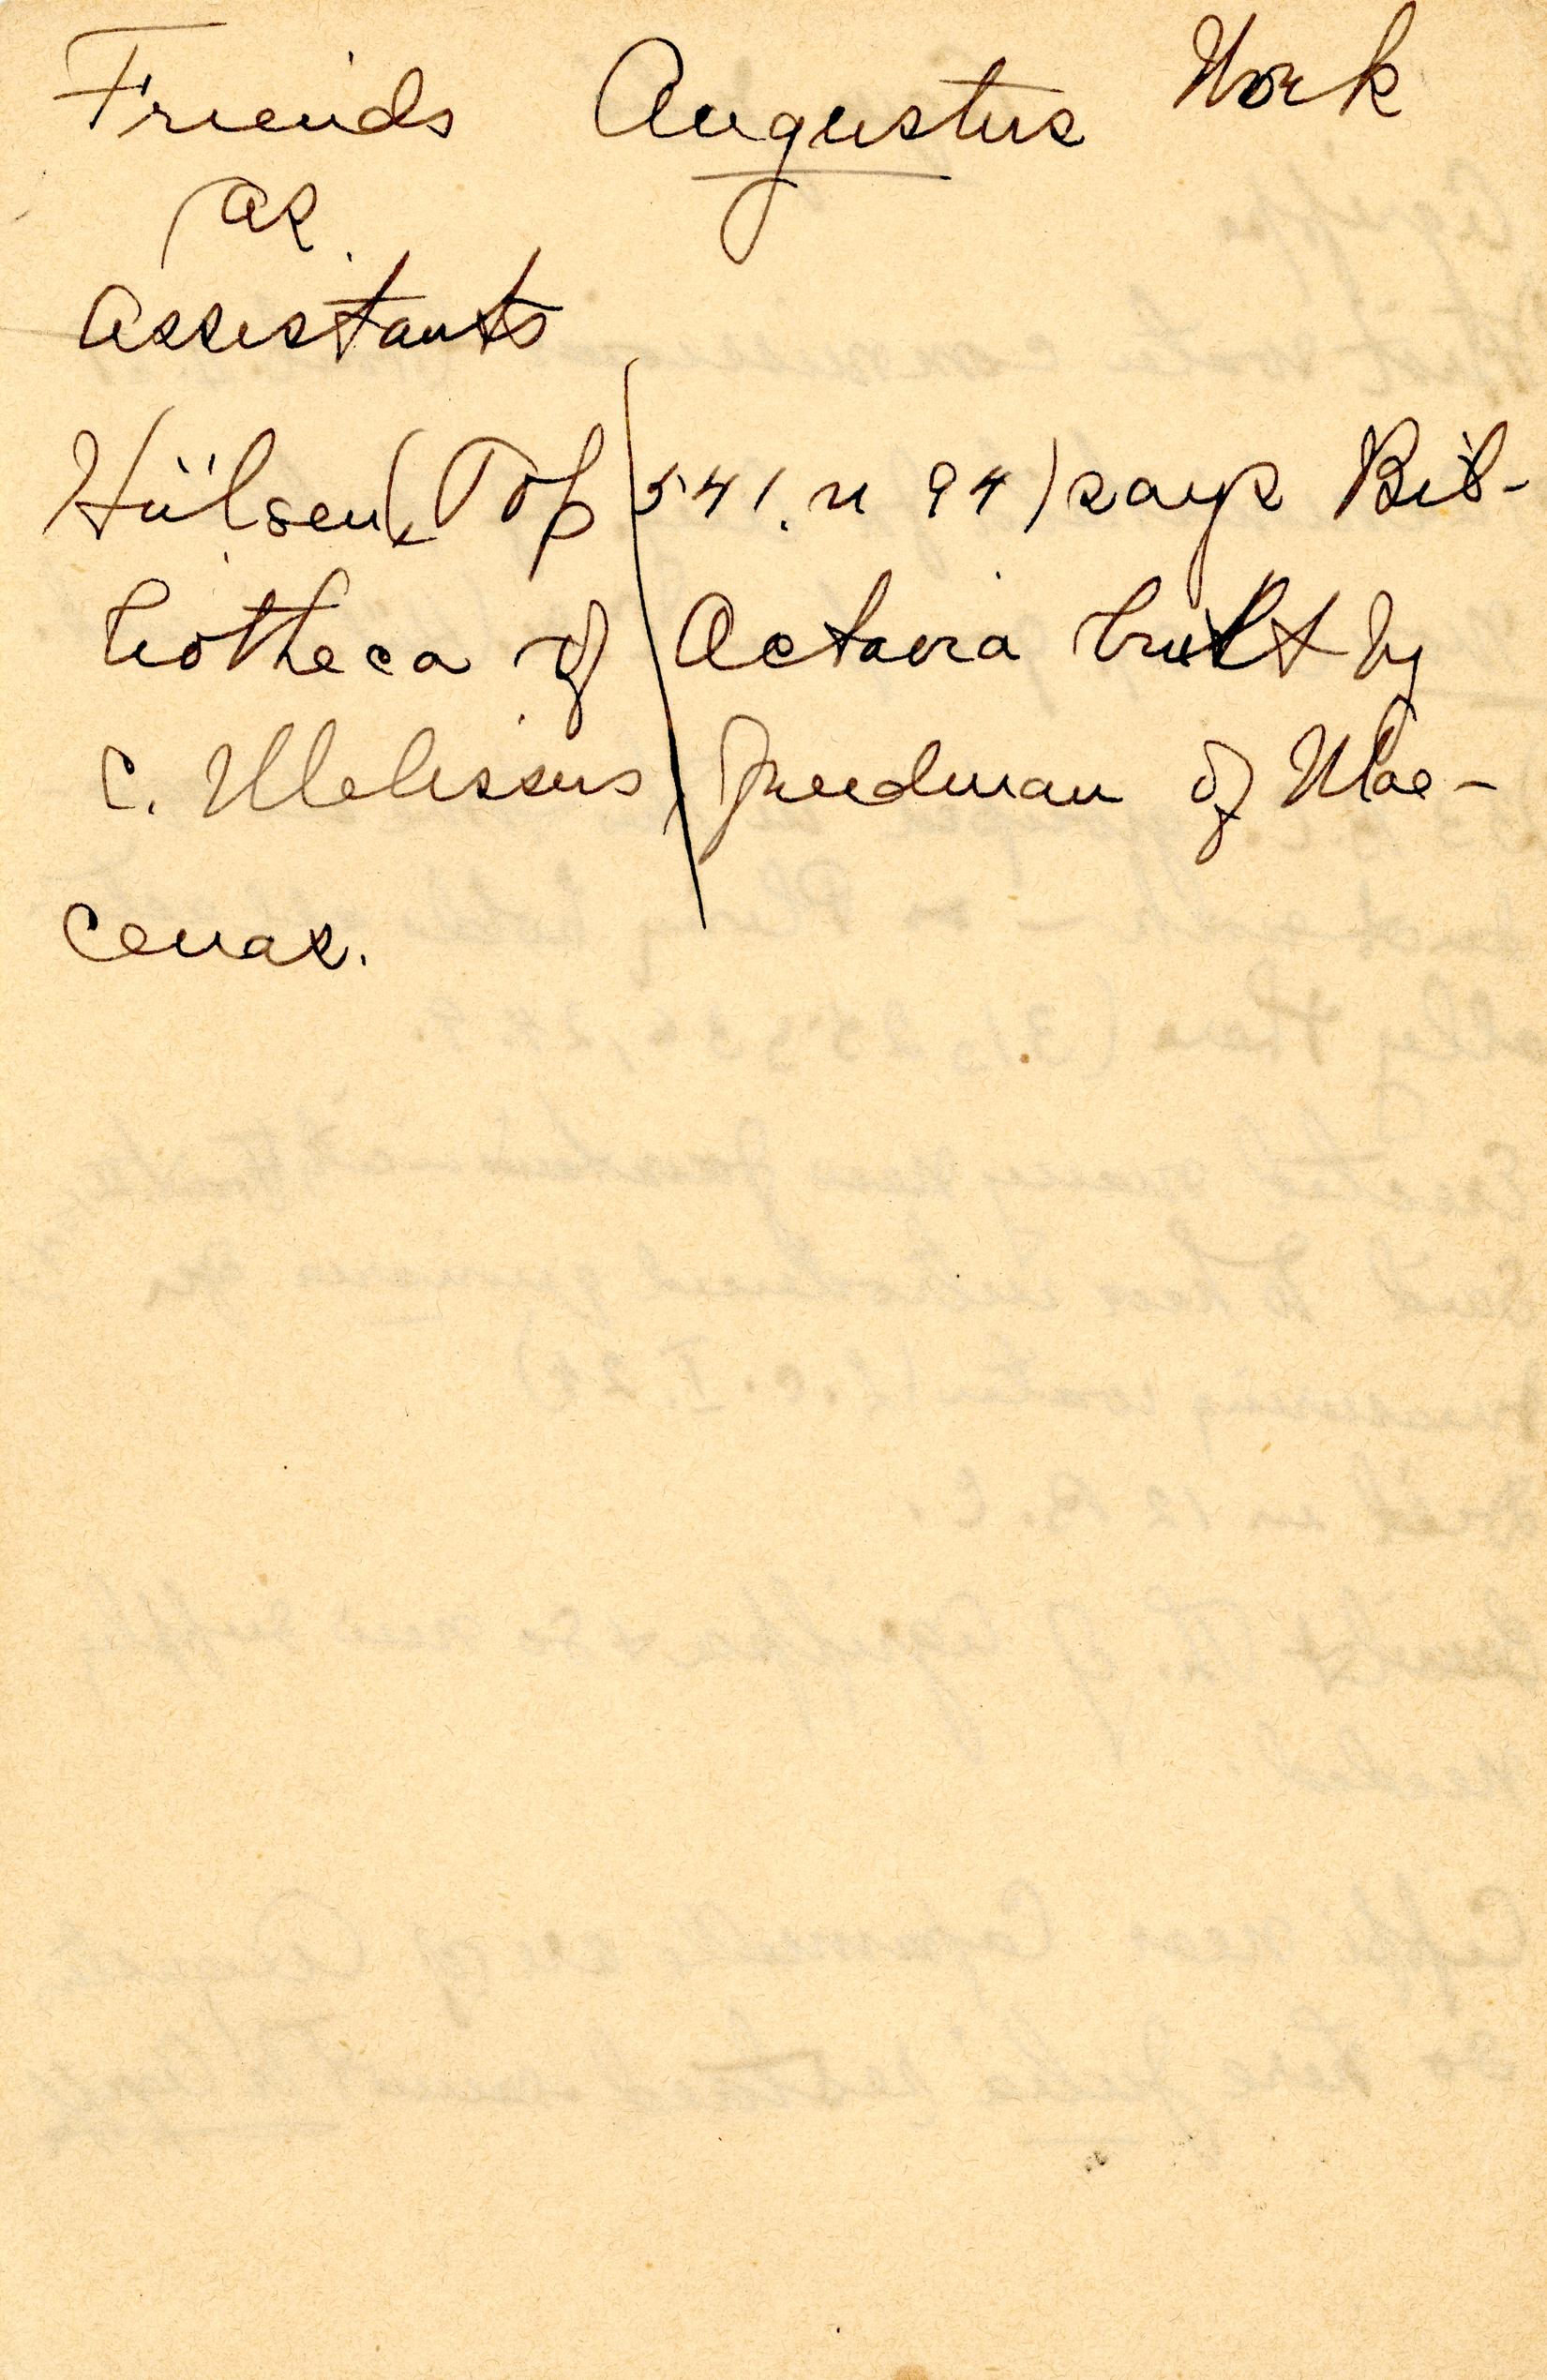 Friends Augustus Work
as
Assistants
Hülsen (Top 541. n 94) says Bib-
liotheca of Octavia built by
C. Melissus, freedman of Mae-
cenas.